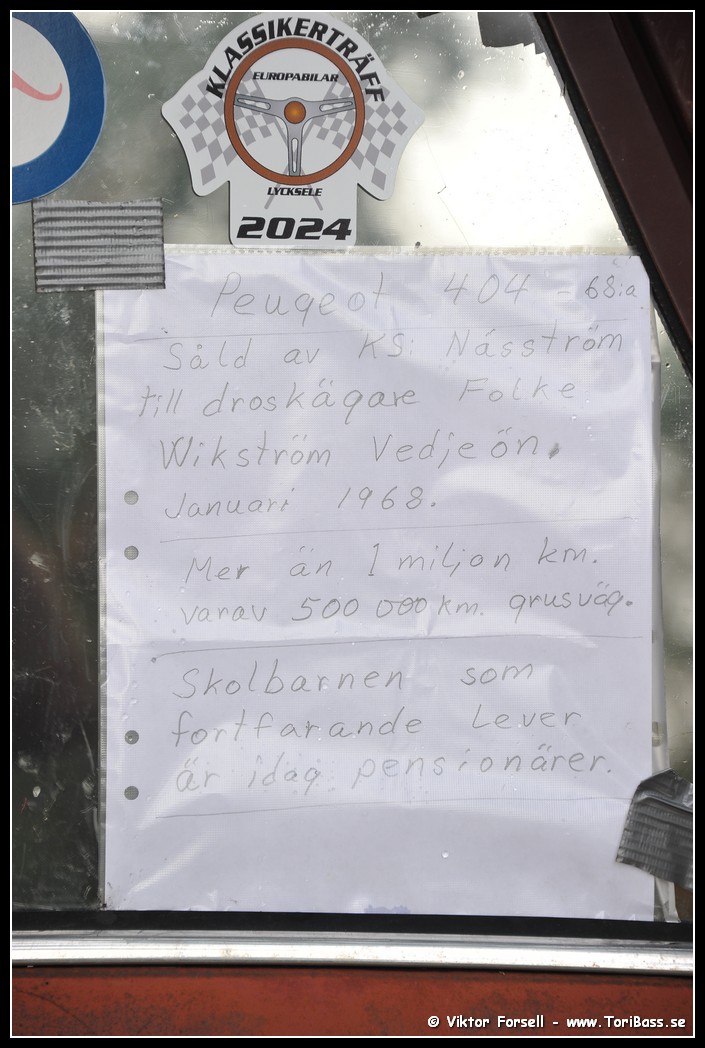 KLASSIKERTRÄFF
EUROPABILAR
LYCKSELE
2024
Peugeot 404 - 68:a
Såld av KS: Näsström
till droskägare Folke
Wikström Vedjeön.
Januari 1968.
Mer än 1 miljon km.
varav 500 000 km. grusväg.
Skolbarnen som
fortfarande Lever
är idag pensionärer.
© Viktor Forsell - www.ToriBass.se